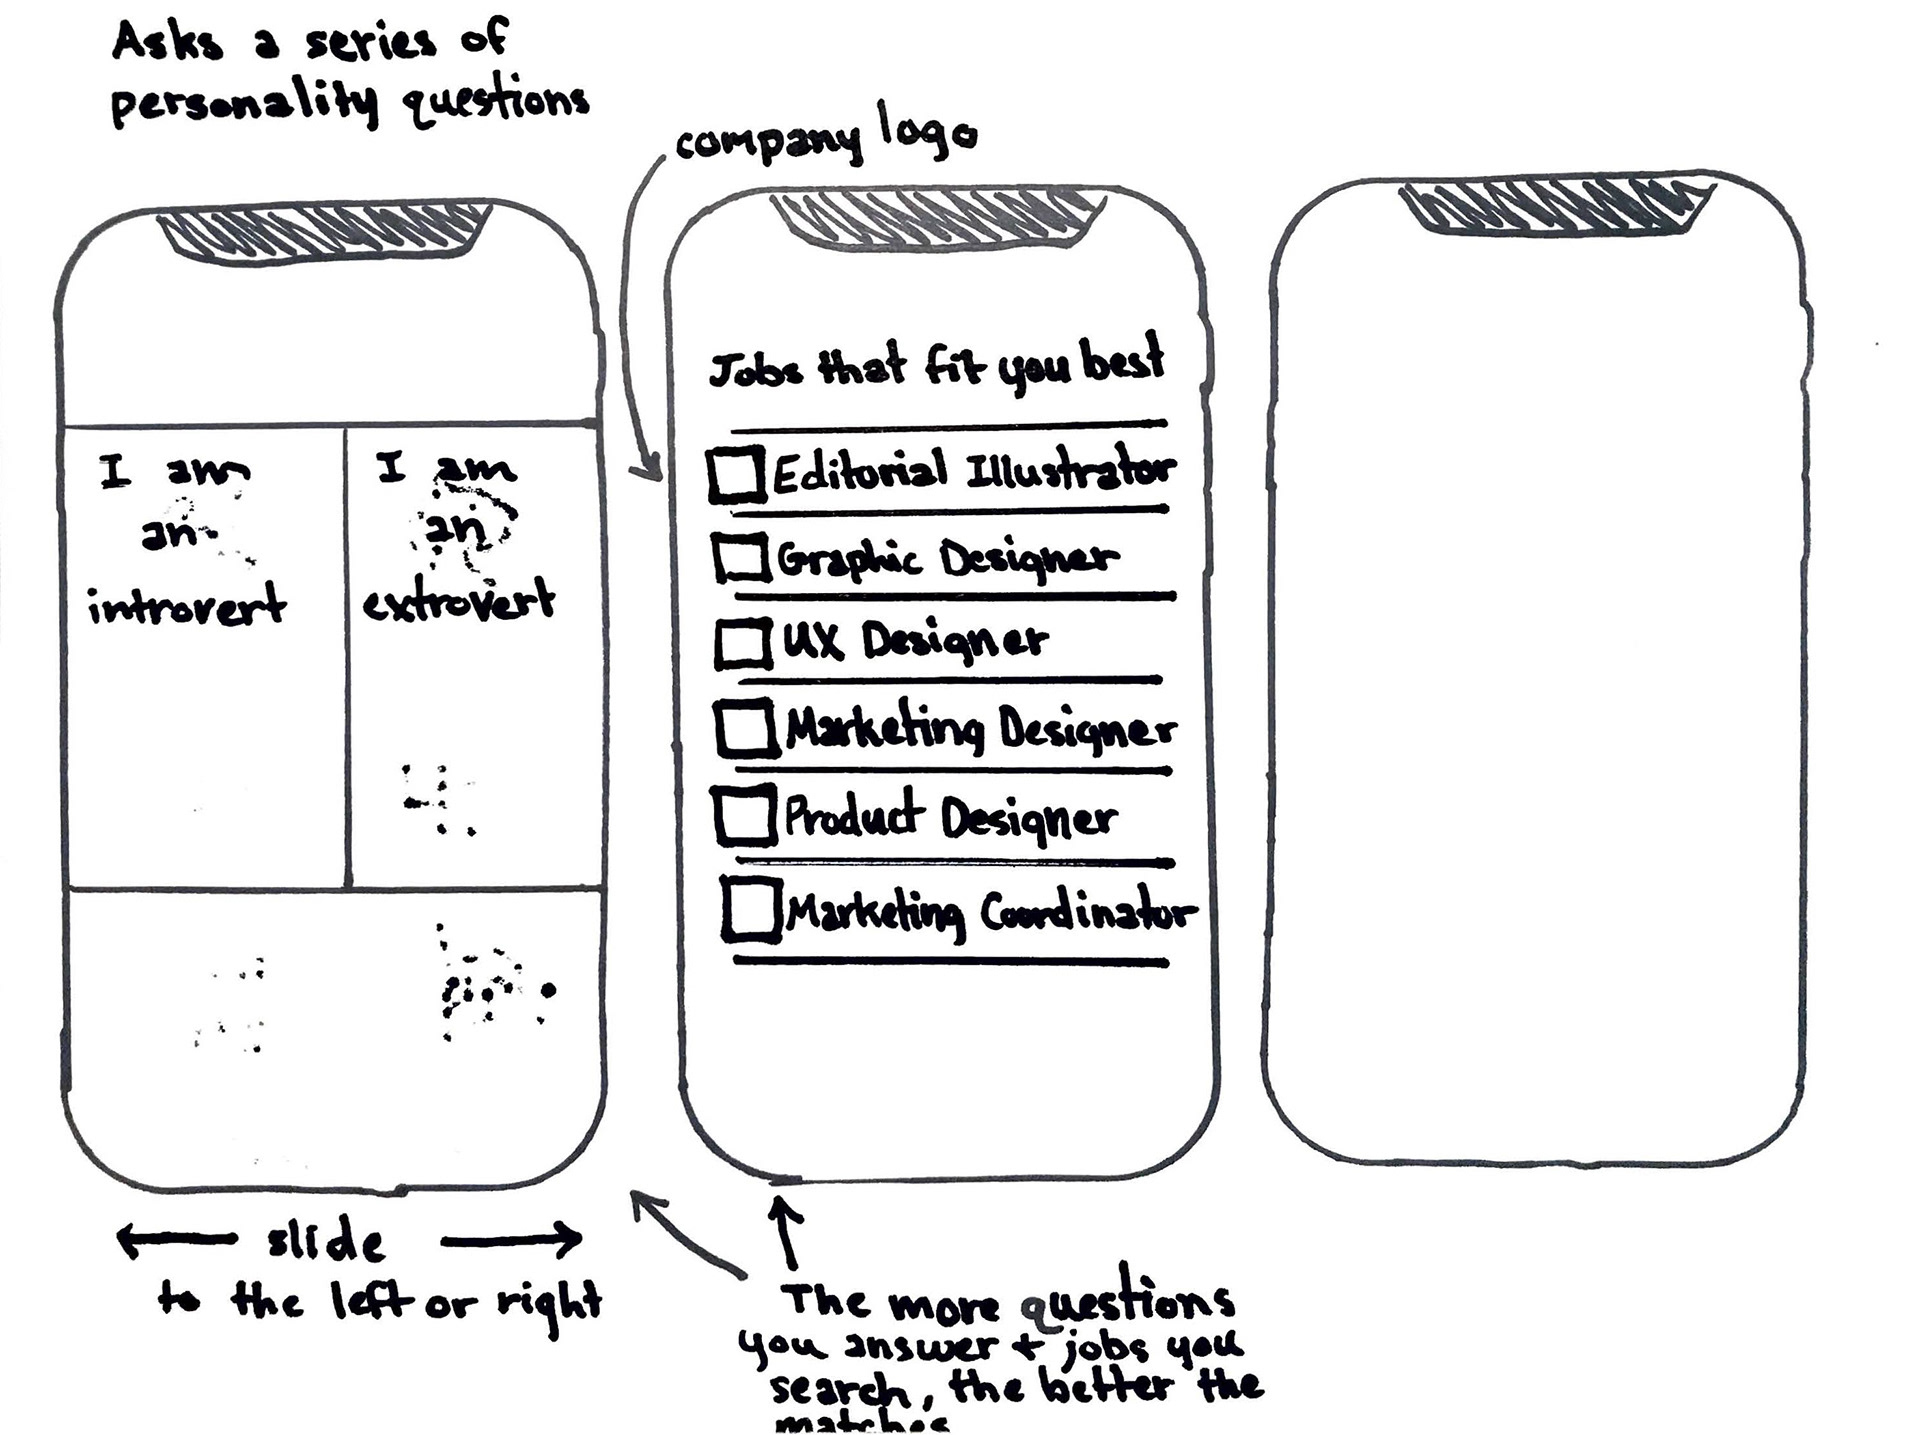 Asks a series of
personality questions
company logo
I am
an
introvert
I am
an
extrovert
slide
to the left or right
Jobs that fit you best
Editorial Illustrator
Graphic Designer
UX Designer
Marketing Designer
Product Designer
Marketing Coordinator
The more questions
you answer + jobs you
search, the better the
matches